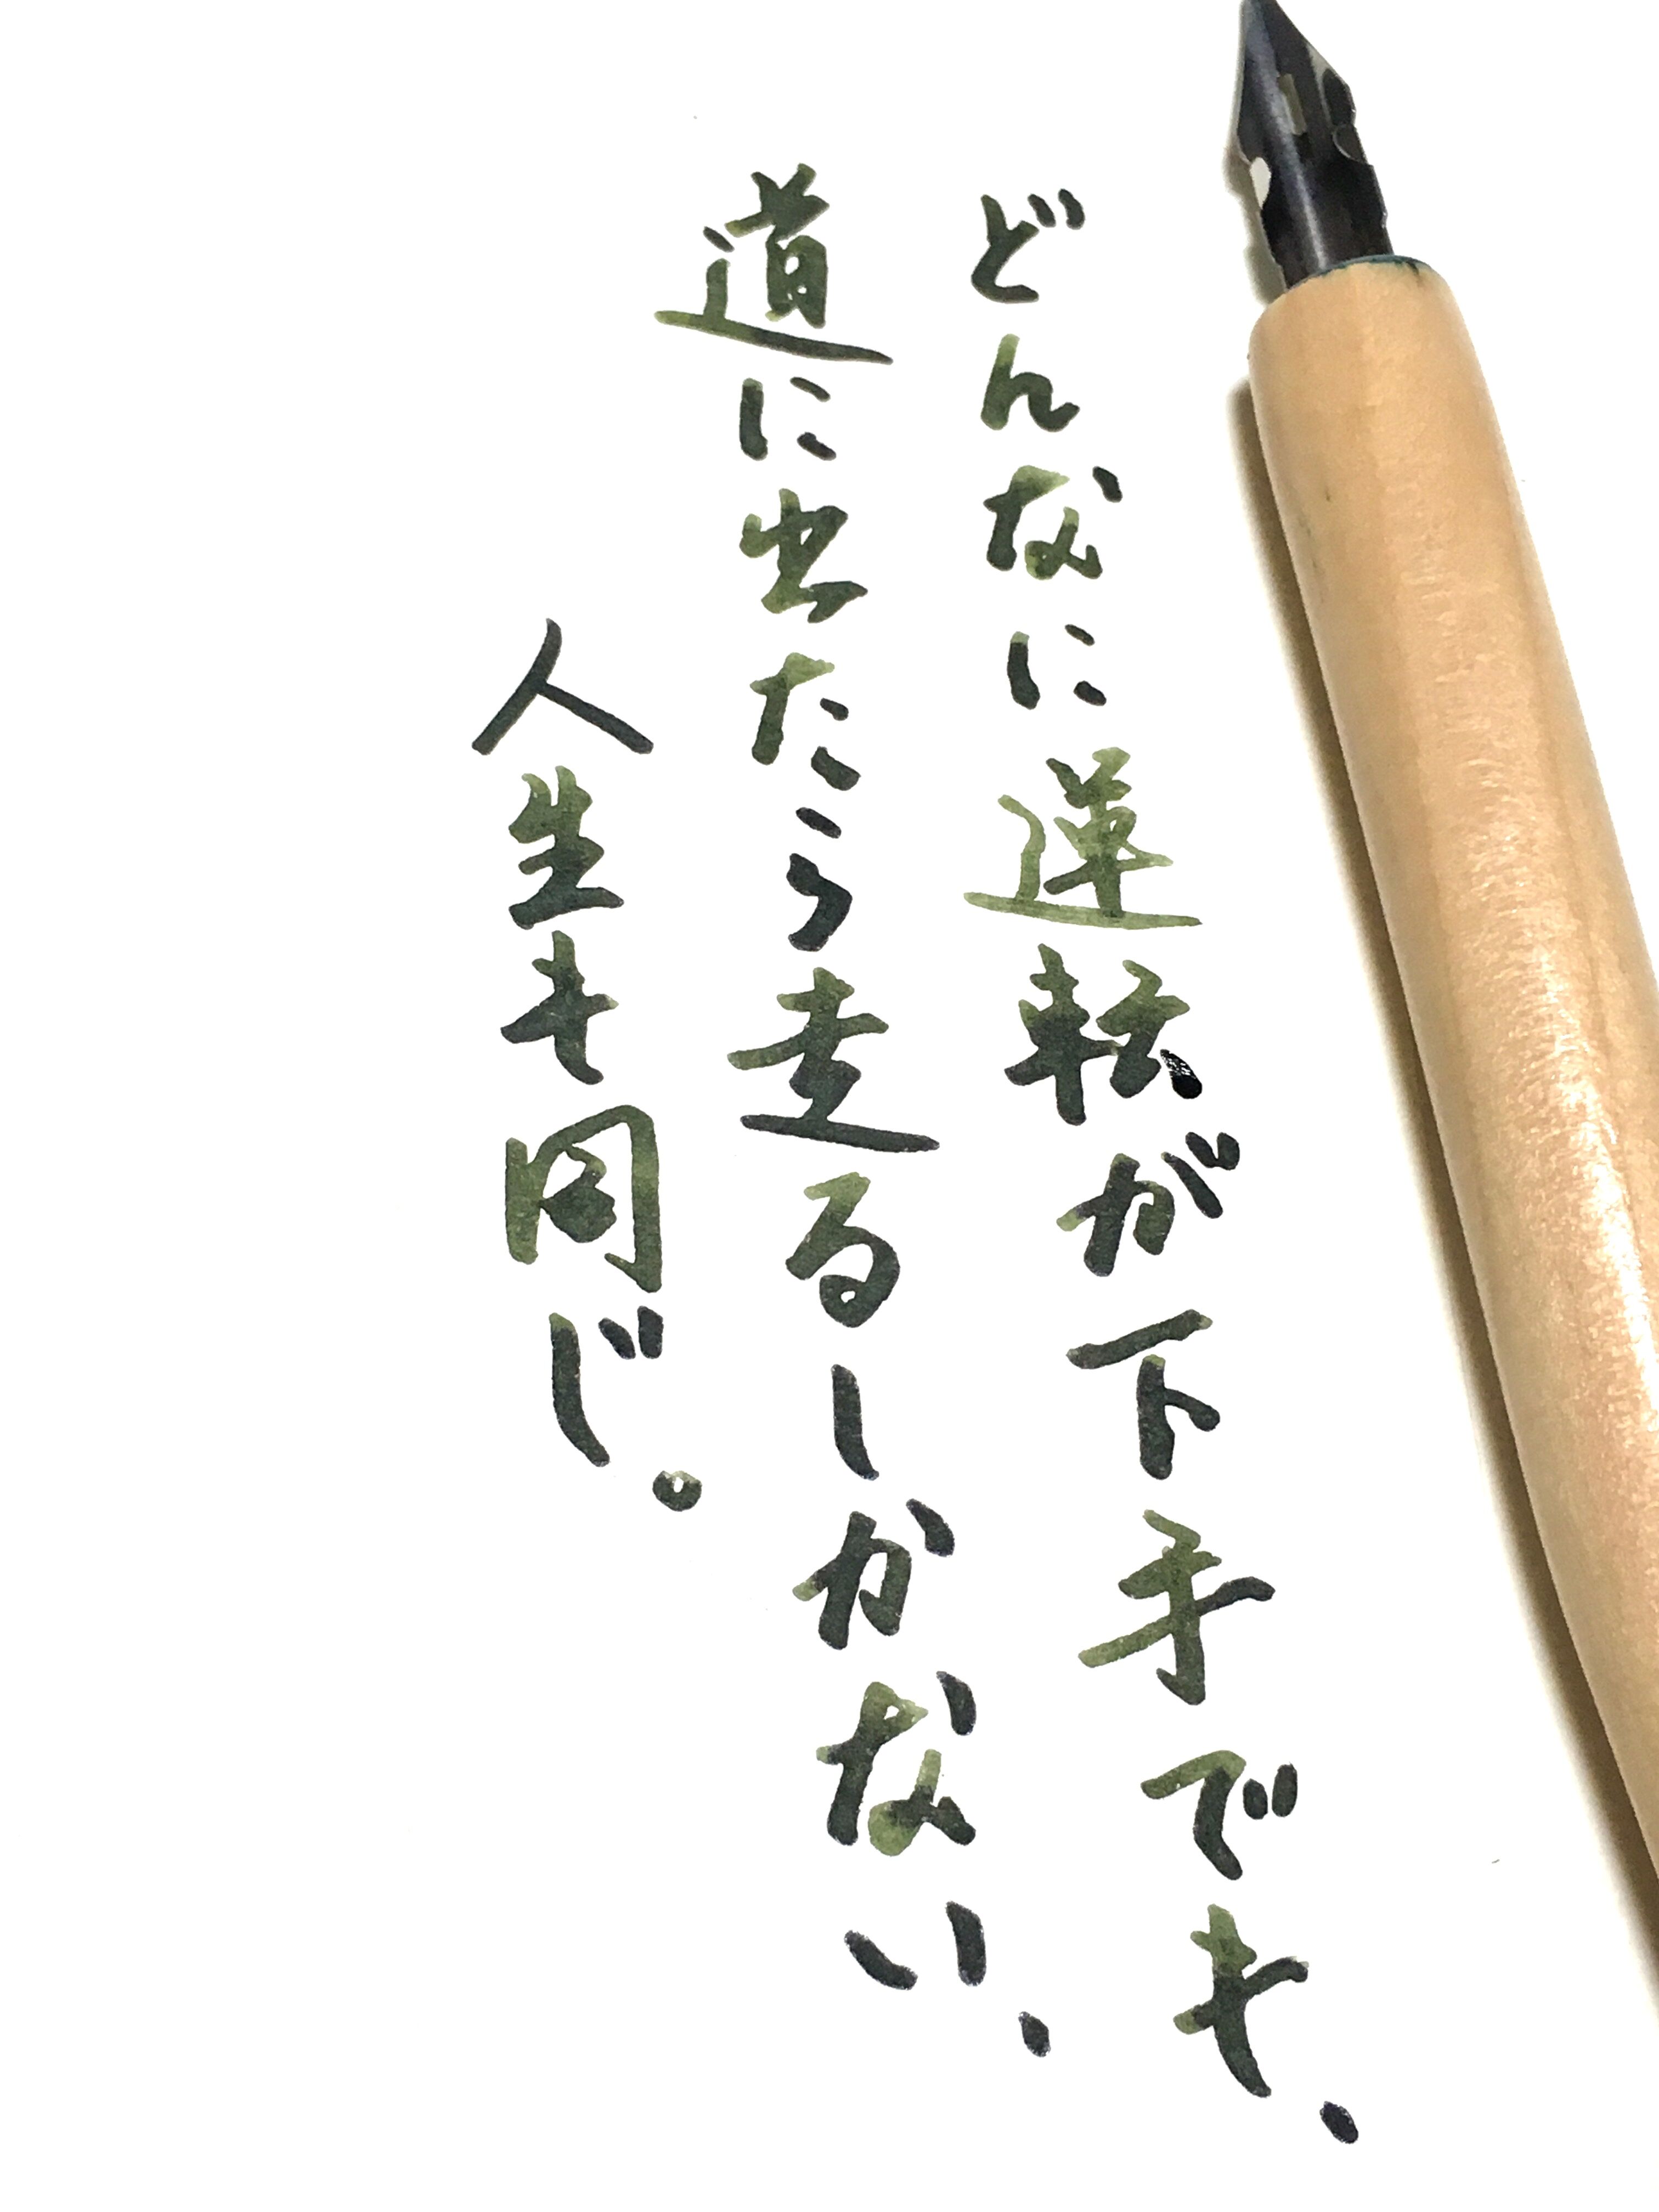 どんなに運転が下手でも、
道に出たら走るしかない、
人生も同じ。